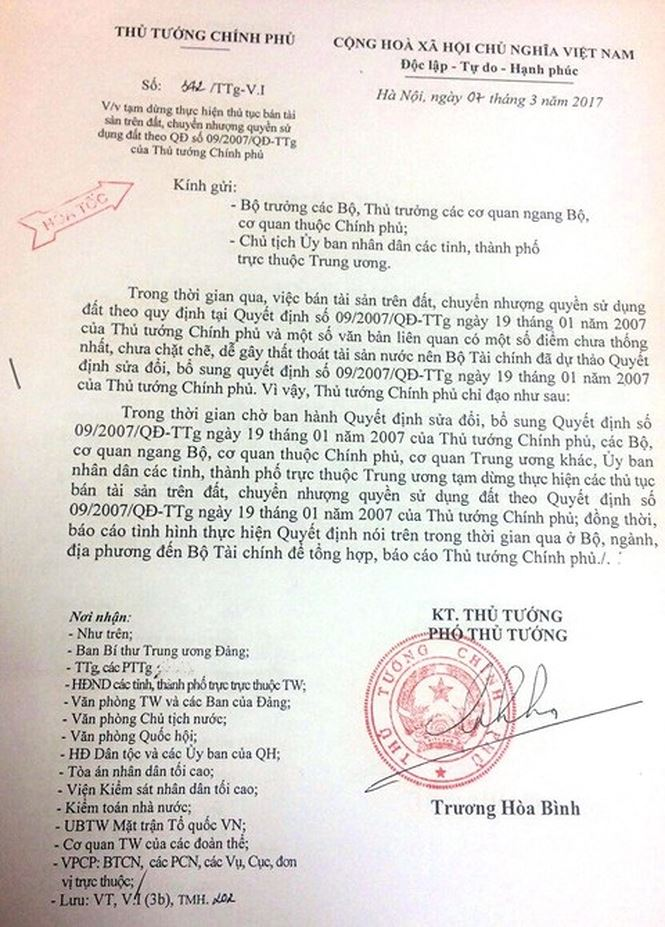 THỦ TƯỚNG CHÍNH PHỦ
CỘNG HOÀ XÃ HỘI CHỦ NGHĨA VIỆT NAM
Độc lập - Tự do - Hạnh phúc
Số: 342 /TTg-V.I
Hà Nội, ngày 07 tháng 3 năm 2017
V/v tạm dừng thực hiện thủ tục bán tài
sản trên đất, chuyển nhượng quyền sử
dụng đất theo QĐ số 09/2007/QĐ-TTg
của Thủ tướng Chính phủ
HỎA TỐC
Kính gửi:
- Bộ trưởng các Bộ, Thủ trưởng các cơ quan ngang Bộ,
cơ quan thuộc Chính phủ;
- Chủ tịch Ủy ban nhân dân các tỉnh, thành phố
trực thuộc Trung ương.
Trong thời gian qua, việc bán tài sản trên đất, chuyển nhượng quyền sử dụng
đất theo quy định tại Quyết định số 09/2007/QĐ-TTg ngày 19 tháng 01 năm 2007
của Thủ tướng Chính phủ và một số văn bản liên quan có một số điểm chưa thống
nhất, chưa chặt chẽ, dễ gây thất thoát tài sản nước nên Bộ Tài chính đã dự thảo Quyết
định sửa đổi, bổ sung quyết định số 09/2007/QĐ-TTg ngày 19 tháng 01 năm 2007
của Thủ tướng Chính phủ. Vì vậy, Thủ tướng Chính phủ chỉ đạo như sau:
Trong thời gian chờ ban hành Quyết định sửa đổi, bổ sung Quyết định số
09/2007/QĐ-TTg ngày 19 tháng 01 năm 2007 của Thủ tướng Chính phủ, các Bộ,
cơ quan ngang Bộ, cơ quan thuộc Chính phủ, cơ quan Trung ương khác, Ủy ban
nhân dân các tỉnh, thành phố trực thuộc Trung ương tạm dừng thực hiện các thủ tục
bán tài sản trên đất, chuyển nhượng quyền sử dụng đất theo Quyết định số
09/2007/QĐ-TTg ngày 19 tháng 01 năm 2007 của Thủ tướng Chính phủ; đồng thời,
báo cáo tình hình thực hiện Quyết định nói trên trong thời gian qua ở Bộ, ngành,
địa phương đến Bộ Tài chính để tổng hợp, báo cáo Thủ tướng Chính phủ./.
Nơi nhận:
- Như trên;
- Ban Bí thư Trung ương Đảng;
- TTg, các PTTg
- HĐND các tỉnh, thành phố trực trực thuộc TW;
- Văn phòng TW và các Ban của Đảng;
- Văn phòng Chủ tịch nước;
- Văn phòng Quốc hội;
- HĐ Dân tộc và các Ủy ban của QH;
- Tòa án nhân dân tối cao;
- Viện Kiểm sát nhân dân tối cao;
- Kiểm toán nhà nước;
- UBTW Mặt trận Tổ quốc VN;
- Cơ quan TW của các đoàn thể;
- VPCP: BTCN, các PCN, các Vụ, Cục, đơn
vị trực thuộc;
- Lưu: VT, V.I (3b), TMH.
KT. THỦ TƯỚNG
PHÓ THỦ TƯỚNG
THỦ TƯỚNG CHÍNH PHỦ
Trương Hòa Bình